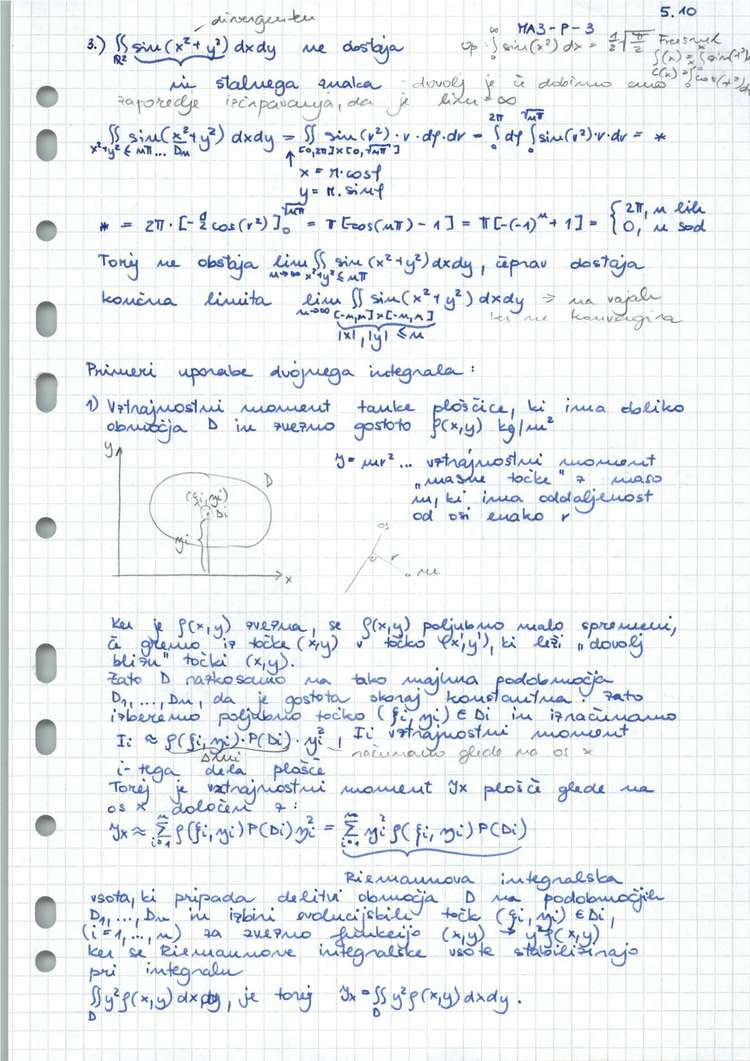 divergentu
5.10
MA3-P-3
3.) ∬_{ℝ²} sin(x²+y²) dxdy ne obstaja
op. ∫_0^∞ sin(x²) dx = 1/2 √(π/2) Fresnel
S(x) = ∫_0^x sin(t²)
C(x) = ∫_0^x cos(t²) dt
ni stalnega znaka - dovolj je če dobimo eno
zaporedje izčrpavanja, da je lim = ∞
∬_{x²+y² ≤ nπ ... Dn} sin(x²+y²) dxdy = ∬_{[0,2π]×[0,√nπ]} sin(r²)·r·dφ·dr = ∫_0^{2π} dφ ∫_0^{√nπ} sin(r²)·r·dr = *
↑ x = r·cosφ
y = r·sinφ
* = 2π·[-1/2 cos(r²)]_0^{√nπ} = π[-cos(nπ)-1] = π[-(-1)^n+1] = { 2π, n lih
0, n sod
Torej ne obstaja lim_{n→∞} ∬_{x²+y² ≤ nπ} sin(x²+y²) dxdy, čeprav obstaja
končna limita lim_{n→∞} ∬_{[-n,n]×[-n,n]} sin(x²+y²) dxdy → na vajah
|x|, |y| ≤ n
ki ne konvergira
Primeri uporabe dvojnega integrala:
1) Vztrajnostni moment tanke ploščice, ki ima obliko
območja D in zvezno gostoto ρ(x,y) kg/m²
y
D
(ξi, ηi)
Di
ηi
x
J = mr² ... vztrajnostni moment
"masne točke" z maso
m, ki ima oddaljenost
od osi enako r
os
r
m
Ker je ρ(x,y) zvezna, se ρ(x,y) poljubno malo spremeni,
če gremo iz točke (x,y) v točko (x',y'), ki leži "dovolj
blizu" točki (x,y).
Zato D razkosamo na tako majhna podobmočja
D1, ..., Dn, da je gostota skoraj konstantna. Zato
izberemo poljubno točko (ξi, ηi) ∈ Di in izračunamo
Ii ≈ ρ(ξi, ηi)·P(Di)·ηi², Ii vztrajnostni moment
Δmi
računamo glede na os x
i-tega dela plošče
Torej je vztrajnostni moment Jx plošče glede na
os x določen z:
Jx ≈ Σ_{i=1}^n ρ(ξi, ηi) P(Di) ηi² = Σ_{i=1}^n ηi² ρ(ξi, ηi) P(Di)
Riemannova integralska
vsota, ki pripada delitvi območja D na podobmočjih
D1, ..., Dn in izbiri evolucijskih točk (ξi, ηi) ∈ Di,
(i=1, ..., n) za zvezno funkcijo (x,y) → y²ρ(x,y)
Ker se Riemannove integralske vsote stabilizirajo
pri integralu
∬_D y²ρ(x,y) dxdy, je torej Jx = ∬_D y²ρ(x,y) dxdy.